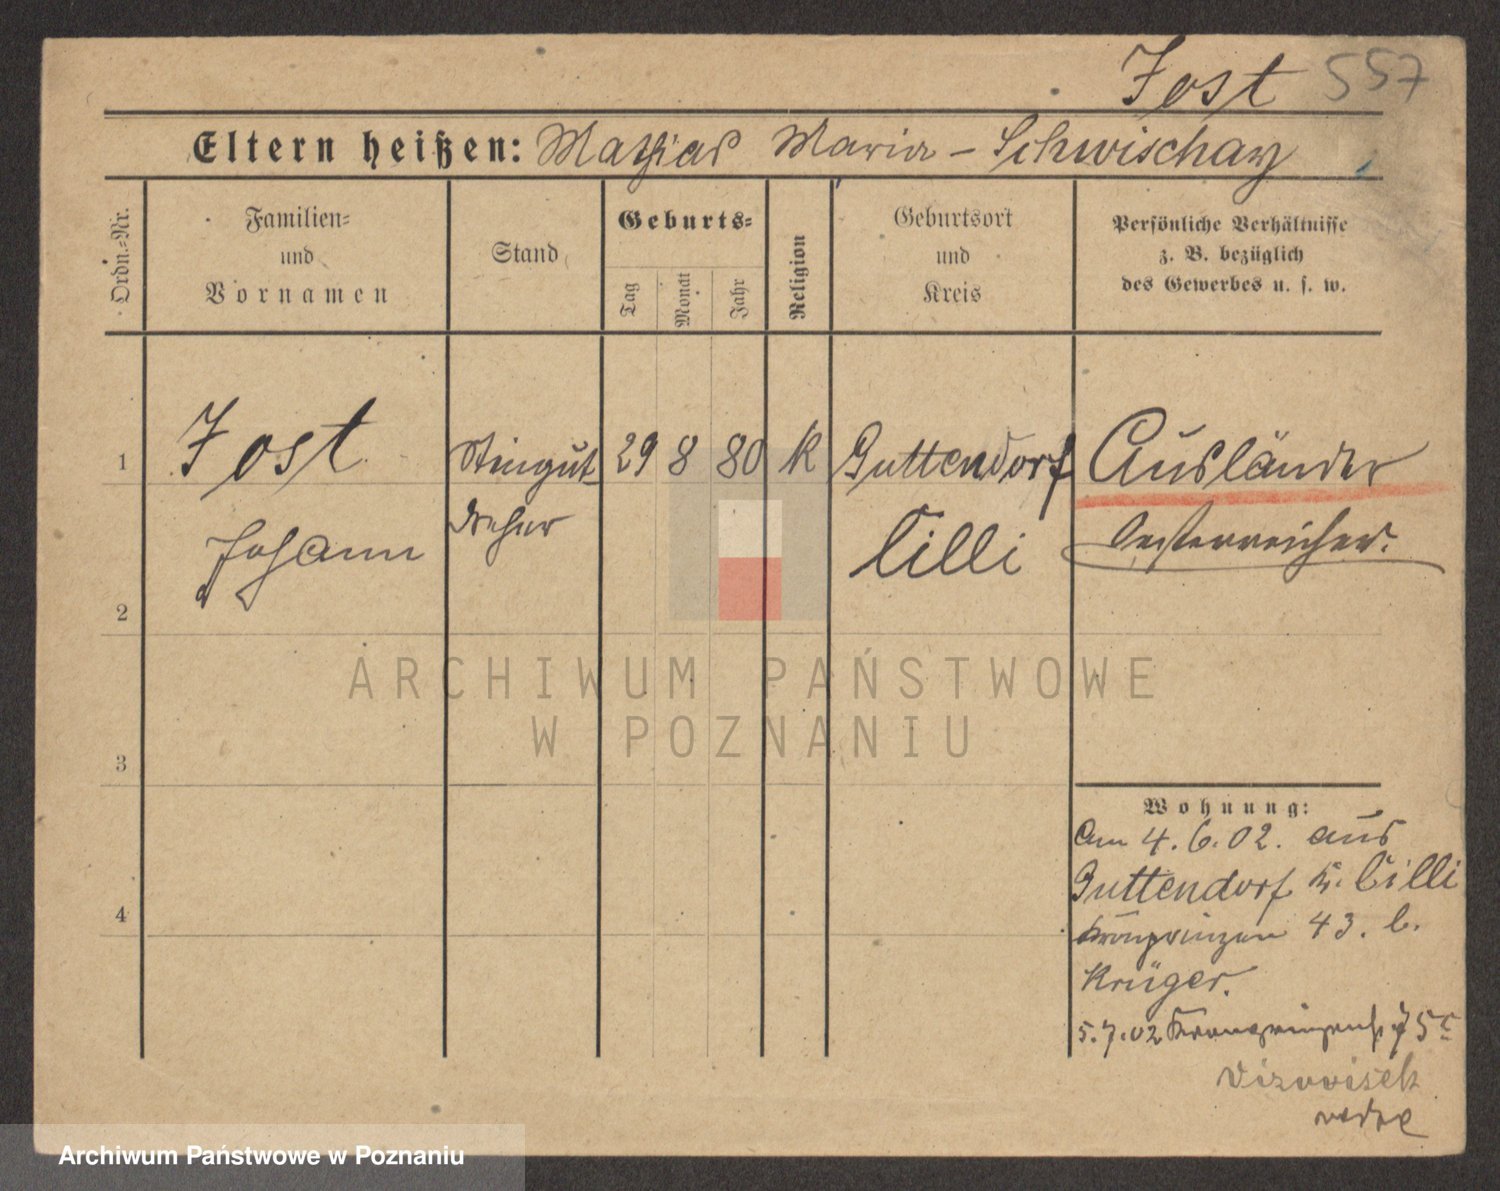 Jost 557
Eltern heißen: Mathias Maria – Schwischay
Ordn.-Nr.
Familien-
und
Vornamen
Stand
Geburts-
Tag
Monat
Jahr
Religion
Geburtsort
und
Kreis
Persönliche Verhältnisse
z. B. bezüglich
des Gewerbes u. s. w.
1 Jost Steingut 29 8 80 K Guttendorf Ausländer
dreher
Johann Cilli Oesterreicher.
2
ARCHIWUM PAŃSTWOWE
W POZNANIU
3
Wohnung:
Am 4.6.02. aus
Guttendorf K. Cilli
4
Kronprinzen 43. b.
Krüger.
5.7.02 Kronprinzenst. 75
Archiwum Państwowe w Poznaniu